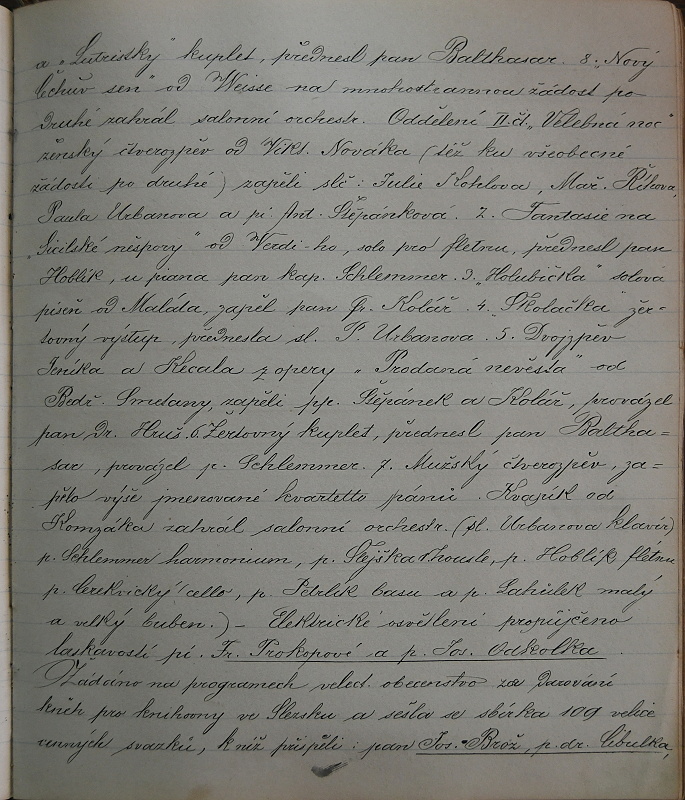 a „Lutristky" kuplet, přednesl pan Balthasar. 8. „Nový
Čechův sen" od Weisse na mnohostrannou žádost po
druhé zahrál salonní orchestr. Oddělení II. čl. „Velebná noc"
ženský čtverozpěv od Vikt. Nováka (též ku všeobecné
žádosti po druhé) zapěli slč: Julie Kohlova, Mař. Říhova,
Paula Urbanova a pí Ant. Štěpánková. 2. Fantasie na
„Sicilské nešpory" od Verdi-ho, solo pro fletnu, přednesl pan
Hoblík, u piana pan kap. Schlemmer. 3. „Holubička" solová
píseň od Maláta, zapěl pan Fr. Kolář. 4. Školačka žer-
tovný výstup, přednesla sl. P. Urbanova. 5. Dvojzpěv
Jeníka a Kecala z opery „Prodaná nevěsta" od
Bedř. Smetany, zapěli pp. Štěpánek a Kolář, provázel
pan Dr. Hruš. 6. Žertovný kuplet, přednesl pan Baltha=
sar, provázel p. Schlemmer. 7. Mužský čtverozpěv, za=
pělo výše jmenované kvartetto pánů. Kvapík od
Komzáka zahrál salonní orchestr. (sl. Urbanova klavír)
p. Schlemmer harmonium, p. housle, p. Hoblík fletnu,
p. Cerekvický cello, p. Petrlík basu a p. malý
a velký buben.) – Elektrické osvětlení propůjčeno
laskavostí pí. Fr. Prokopové a p. Jos. Odkolka.
Žádáno na programech velect. obecenstvo za darování
kněh pro knihovny ve Slezsku a sešla se sbírka 109 velice
cenných svazků, k níž přispěli: pan Jos. Brož, p. dr. Cibulka,